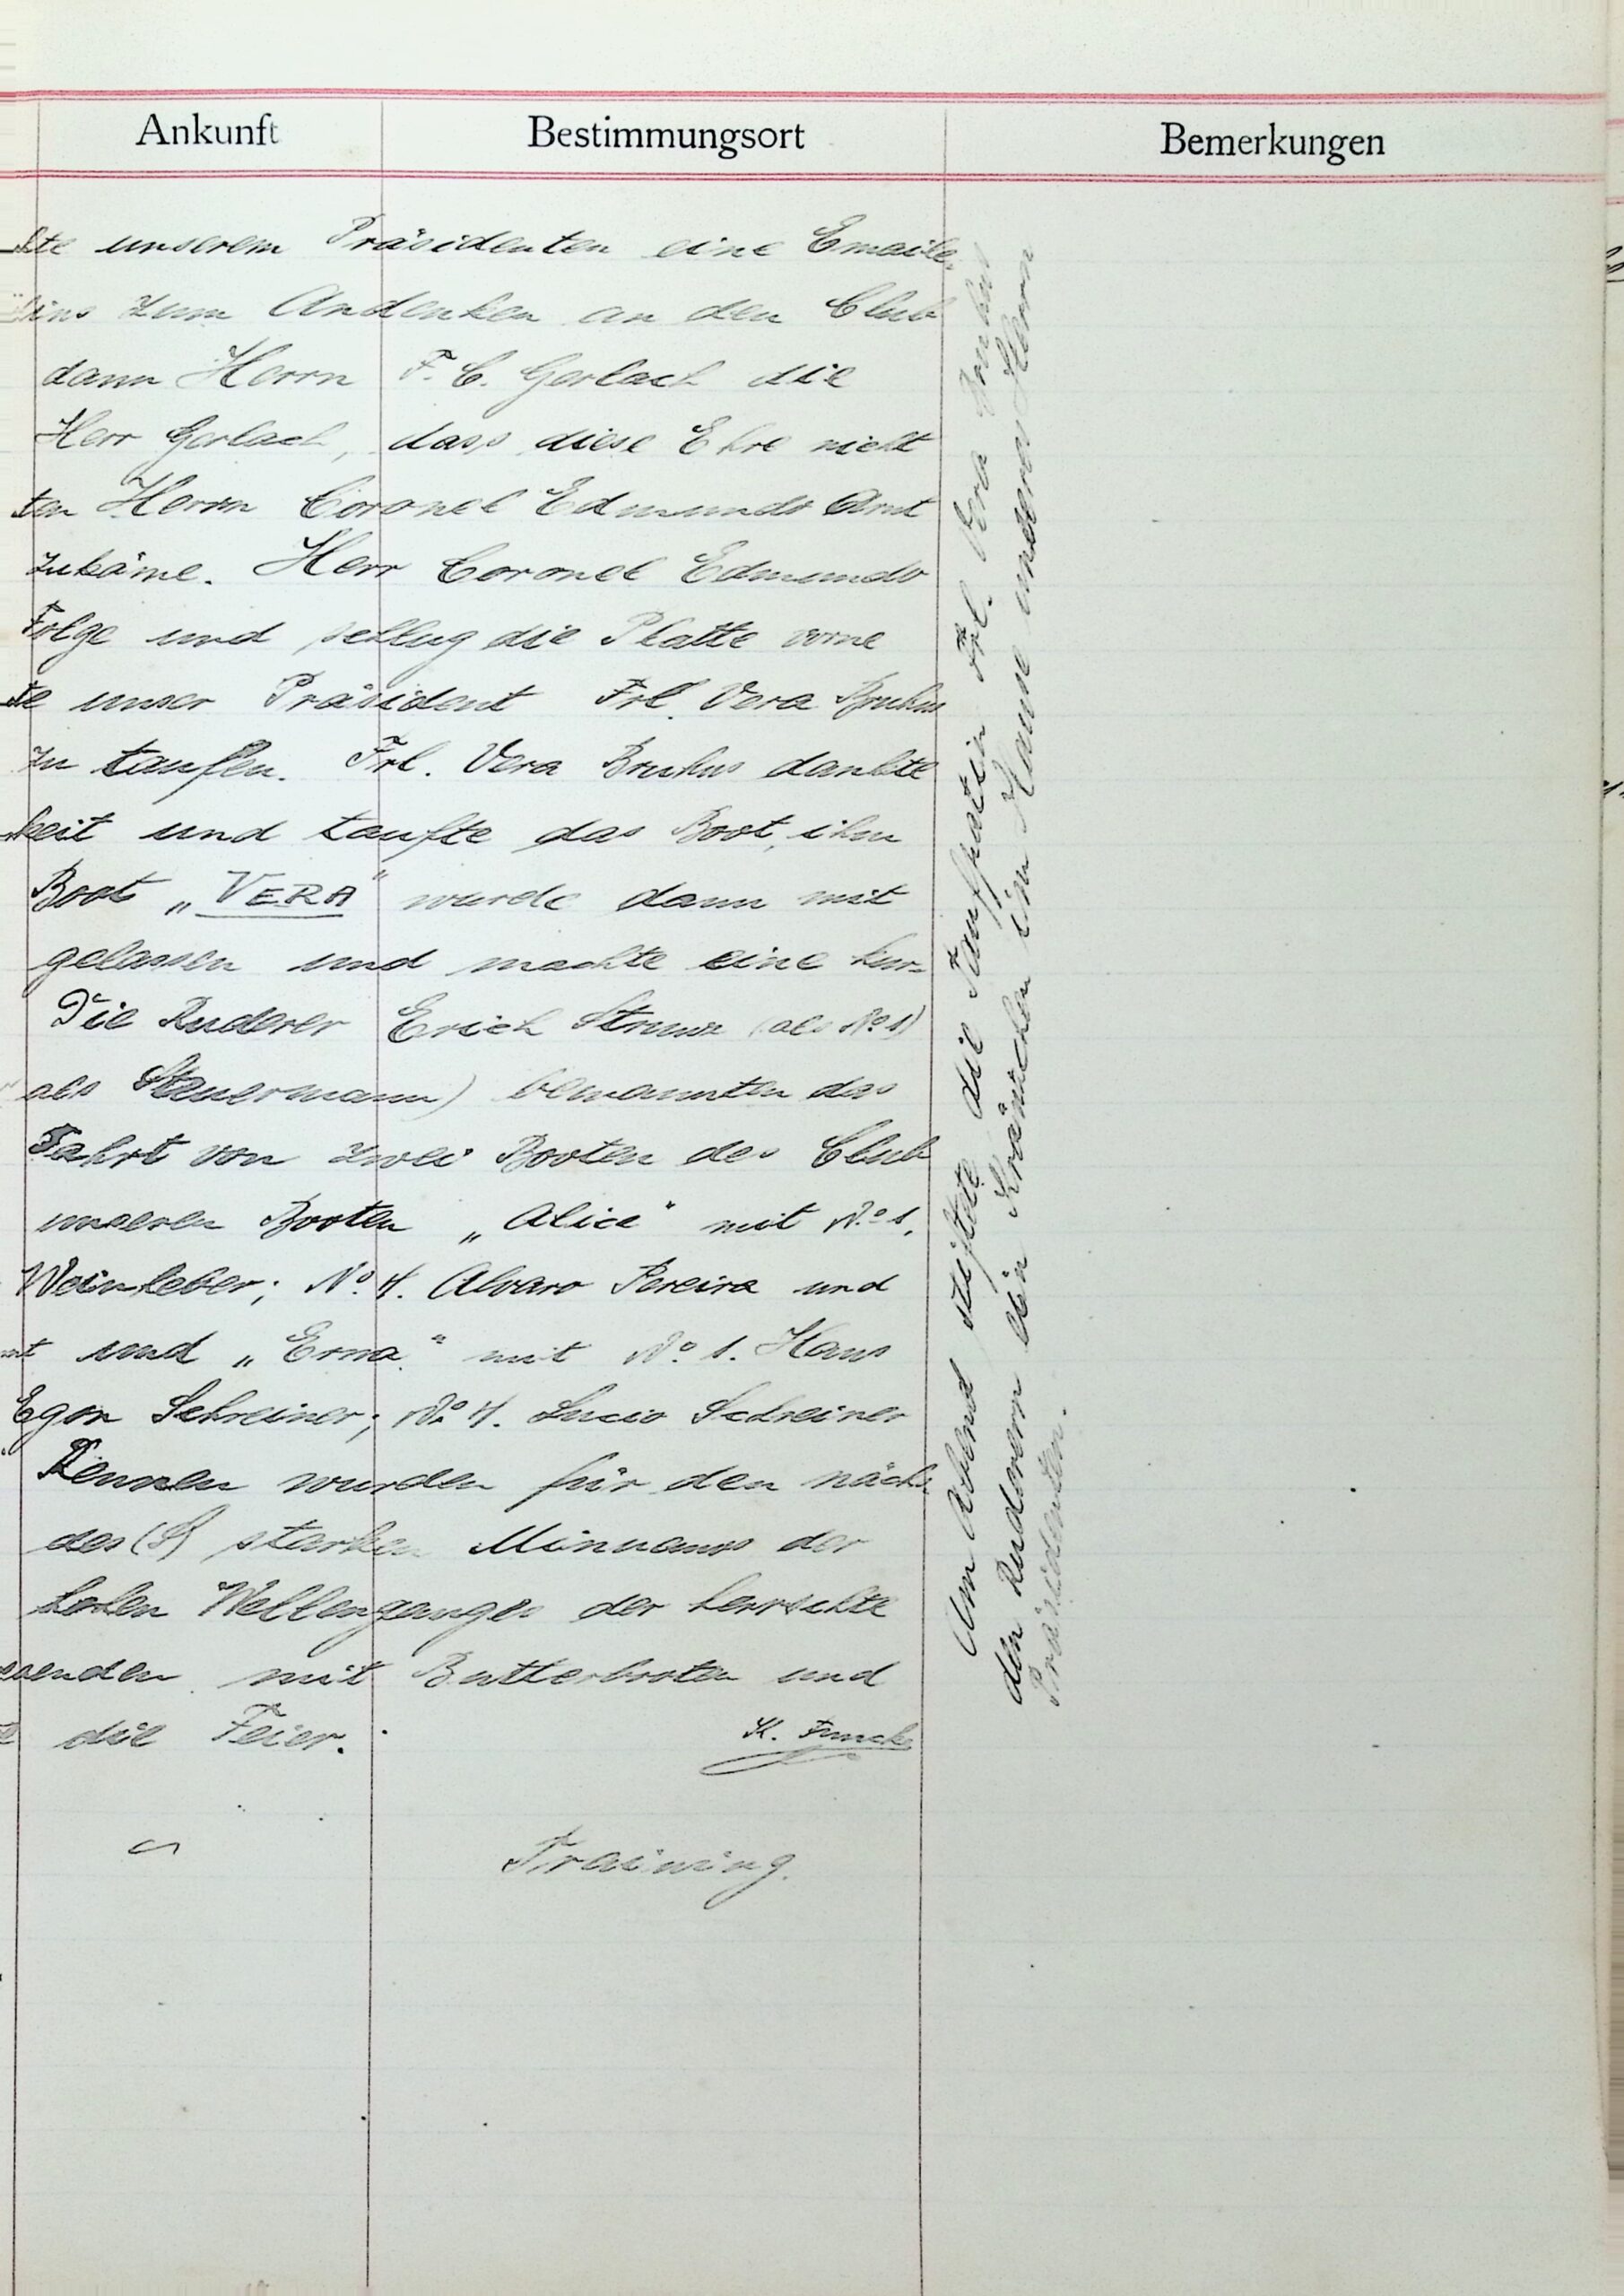 Ankunft Bestimmungsort Bemerkungen
hte unserem Präsidenten eine Emaile-
zum Andenken an den Club
dann Herrn F. C. Gerlach die
Herr Gerlach, dass diese Ehre nicht
ten Herrn Coronel Edmundo Arnt
zukäme. Herr Coronel Edmundo
Folge und schlug die Platte vorne
te unser Präsident Frl. Vera Bruhns
zu taufen. Frl. Vera Bruhns dankte
keit und taufte das Boot, ihm
Boot „VERA" wurde dann mit
gelassen und machte eine kur-
Die Ruderer Erich Struwe (als No. 1)
als Steuermann) bemannten das
Fahrt von zwei Booten des Club
unseren Booten „Alice" mit No. 1.
Weinleber; No. 4. Alvaro Pereira und
und „Erna" mit No. 1. Hans
Egon Schreiner; No. 4. Lucio Schreiner
Rennen wurden für den näch-
des (S) starken Minuanos der
hohen Wellenganges der herrschte
senden mit Butterbroten und
die Feier.
K. Funcke
Training.
Am Abend stiftete die Taufpatin Frl. Vera Bruhns
den Ruderern ein Kränzchen im Hause unseres Herrn
Präsidenten.